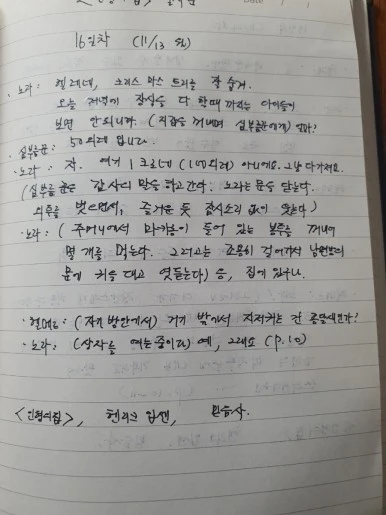 16일차 (11/13 월)
· 노라: 헬레네, 크리스마스 트리를 잘 숨겨.
오늘 저녁에 장식을 다 할 때까지는 아이들이
보면 안되니까. (지갑을 꺼내며 심부름꾼에게) 얼마?
· 심부름꾼: 50외레 입니다.
· 노라: 자. 여기 1크로네 (100외레) 아니에요. 그냥 다 가져요.
(심부름꾼은 감사의 말을 하고 간다. 노라는 문을 닫는다.
외투를 벗으면서, 즐거운 듯 소리 없이 웃는다)
· 노라: (주머니에서 마카롱이 들어 있는 봉투를 꺼내어
몇 개를 먹는다. 그러고는 조용히 걸어가서 남편의
문에 귀를 대고 엿듣는다) 응, 집에 있구나.
· 헬메르: (자기 방안에서) 거기 밖에서 지저귀는 건 종달새인가?
· 노라: (상자를 여는 중이다) 예, 그래요 (p.10)
<인형의집>, 헨리크 입센, 민음사.